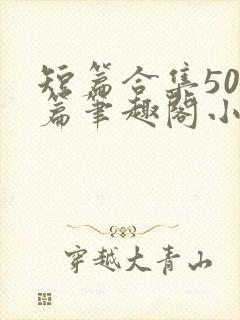 短篇合集50
篇笔趣阁小
穿越大青山